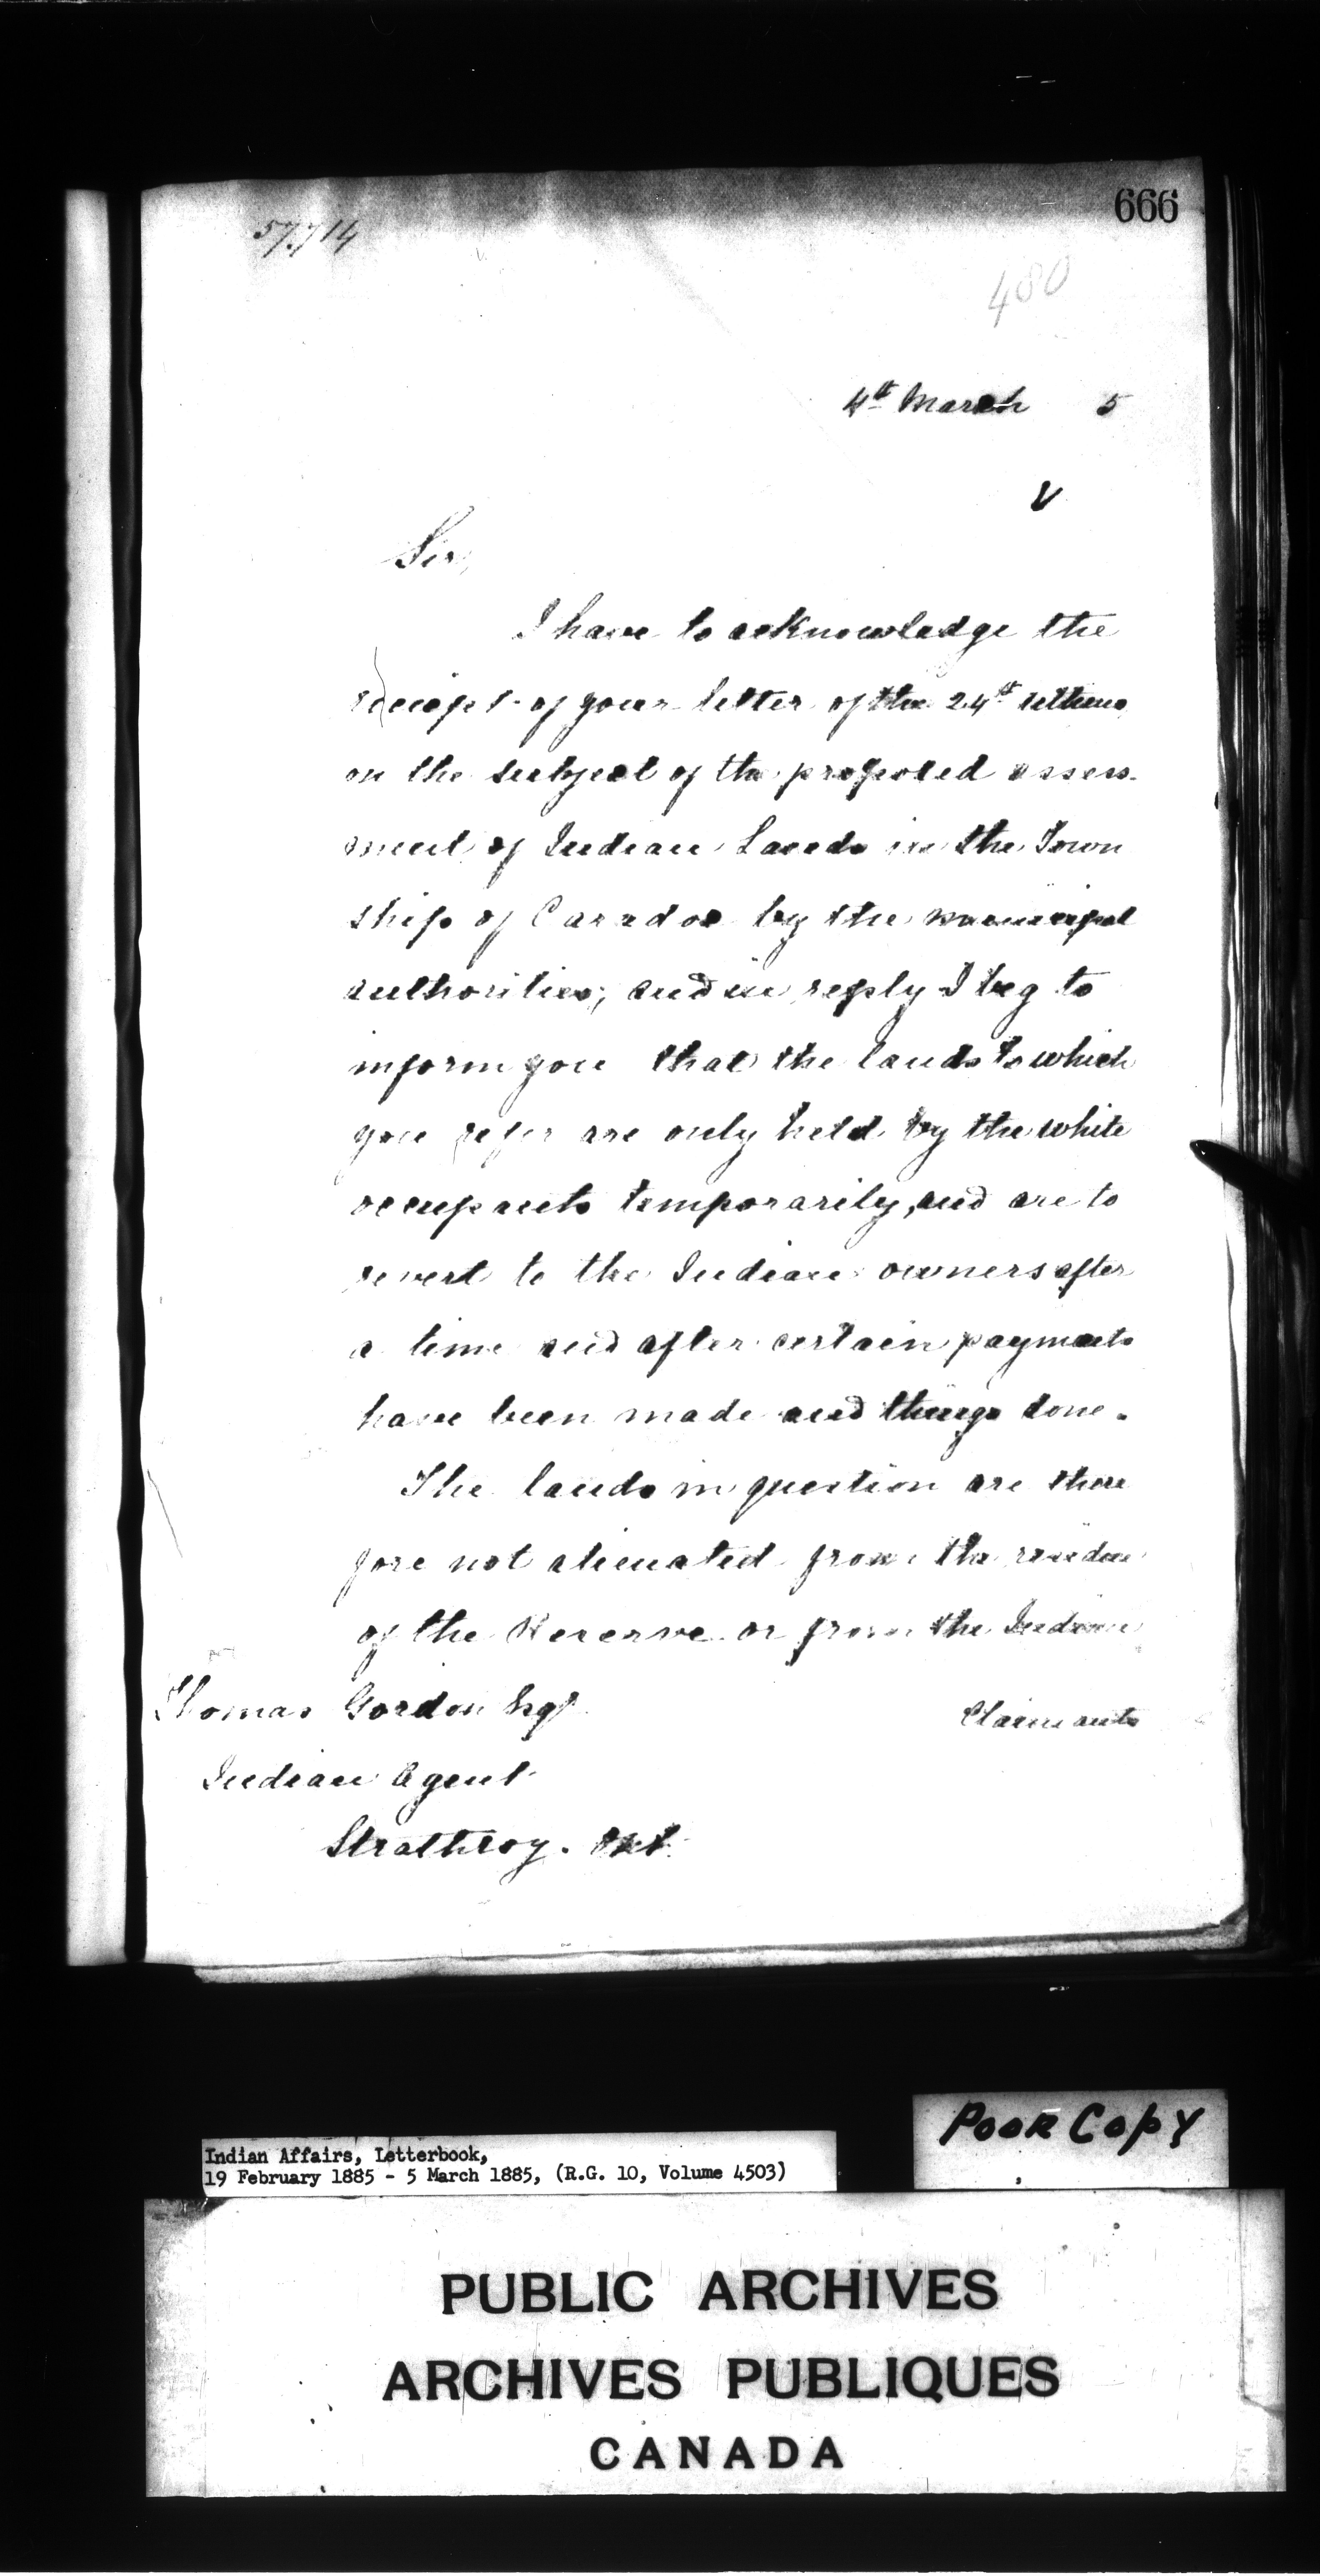 57,714
666
480
4th March 5
Sir,
I have to acknowledge the
receipt of your letter of the 24th ultimo
on the subject of the proposed assess-
ment of Indian Lands in the Town
ship of Caradoc by the municipal
authorities; and in reply I beg to
inform you that the lands to which
you refer are only held by the white
occupants temporarily, and are to
revert to the Indian owners after
a time and after certain payments
have been made and things done.
The lands in question are there
fore not alienated from the residue
of the Reserve or from the Indian
Claimants
Thomas Gordon Esqr
Indian Agent
Strathroy. Ont.
Poor Copy
Indian Affairs, Letterbook,
19 February 1885 - 5 March 1885, (R.G. 10, Volume 4503)
PUBLIC ARCHIVES
ARCHIVES PUBLIQUES
CANADA